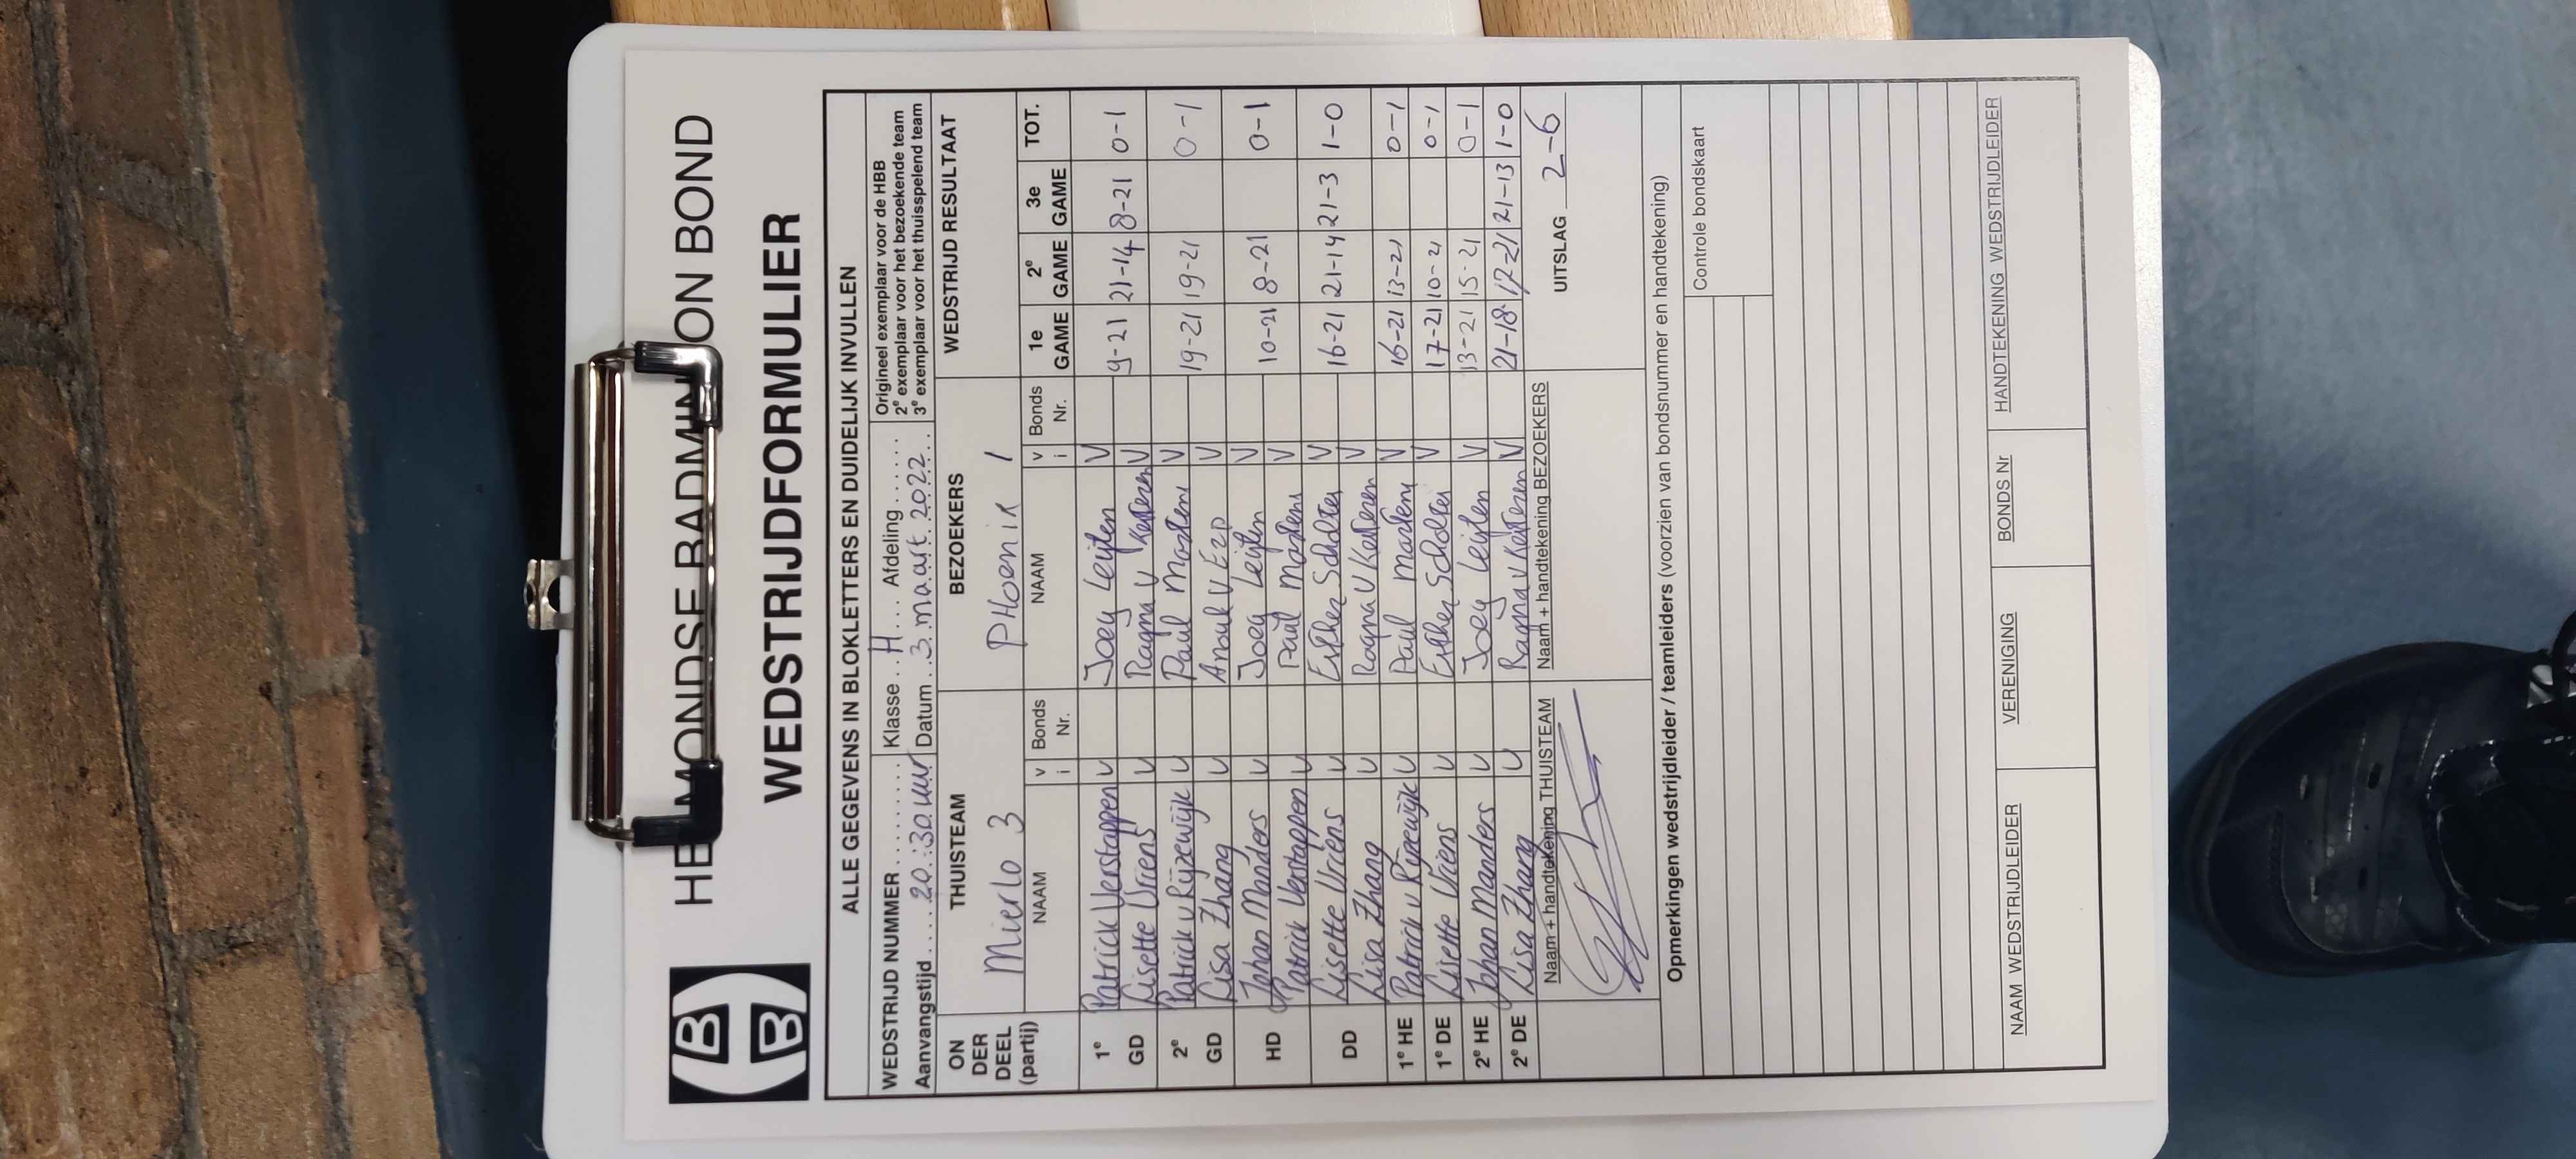 HELMONDSE BADMINTON BOND
WEDSTRIJDFORMULIER
ALLE GEGEVENS IN BLOKLETTERS EN DUIDELIJK INVULLEN
WEDSTRIJD NUMMER .......... Klasse .. H .... Afdeling .......
Aanvangstijd .... 20:30 uur Datum . 3 maart 2022 ..
Origineel exemplaar voor de HBB
2e exemplaar voor het bezoekende team
3e exemplaar voor het thuisspelend team
ON DER DEEL (partij) THUISTEAM BEZOEKERS WEDSTRIJD RESULTAAT
Mierlo 3 PHoenix 1
NAAM v i Bonds Nr. NAAM v i Bonds Nr. 1e GAME 2e GAME 3e GAME TOT.
1e GD Patrick Verstappen V Joey Leijten V 9-21 21-14 8-21 0-1
Lisette Vriens V Ragna V Kessel V
2e GD Patrick v Rijzewijk V Paul Martens V 19-21 19-21 0-1
Lisa Zhang V Anouk V V
HD Johan Manders V Joey Leijten V 10-21 8-21 0-1
Patrick Verstappen V Paul Martens V
DD Lisette Vriens V Esther Scholtes V 16-21 21-14 21-3 1-0
Lisa Zhang V Ragna V V
1e HE Patrick v Rijzewijk V Paul Martens V 16-21 13-21 0-1
1e DE Lisette Vriens V Esther Scholtes V 17-21 10-21 0-1
2e HE Johan Manders V Joey Leijten V 13-21 15-21 0-1
2e DE Lisa Zhang V Ragna V V 21-18 12-21 21-13 1-0
Naam + handtekening THUISTEAM Naam + handtekening BEZOEKERS UITSLAG 2-6
Opmerkingen wedstrijdleider / teamleiders (voorzien van bondsnummer en handtekening)
Controle bondskaart
NAAM WEDSTRIJDLEIDER VERENIGING BONDS Nr HANDTEKENING WEDSTRIJDLEIDER